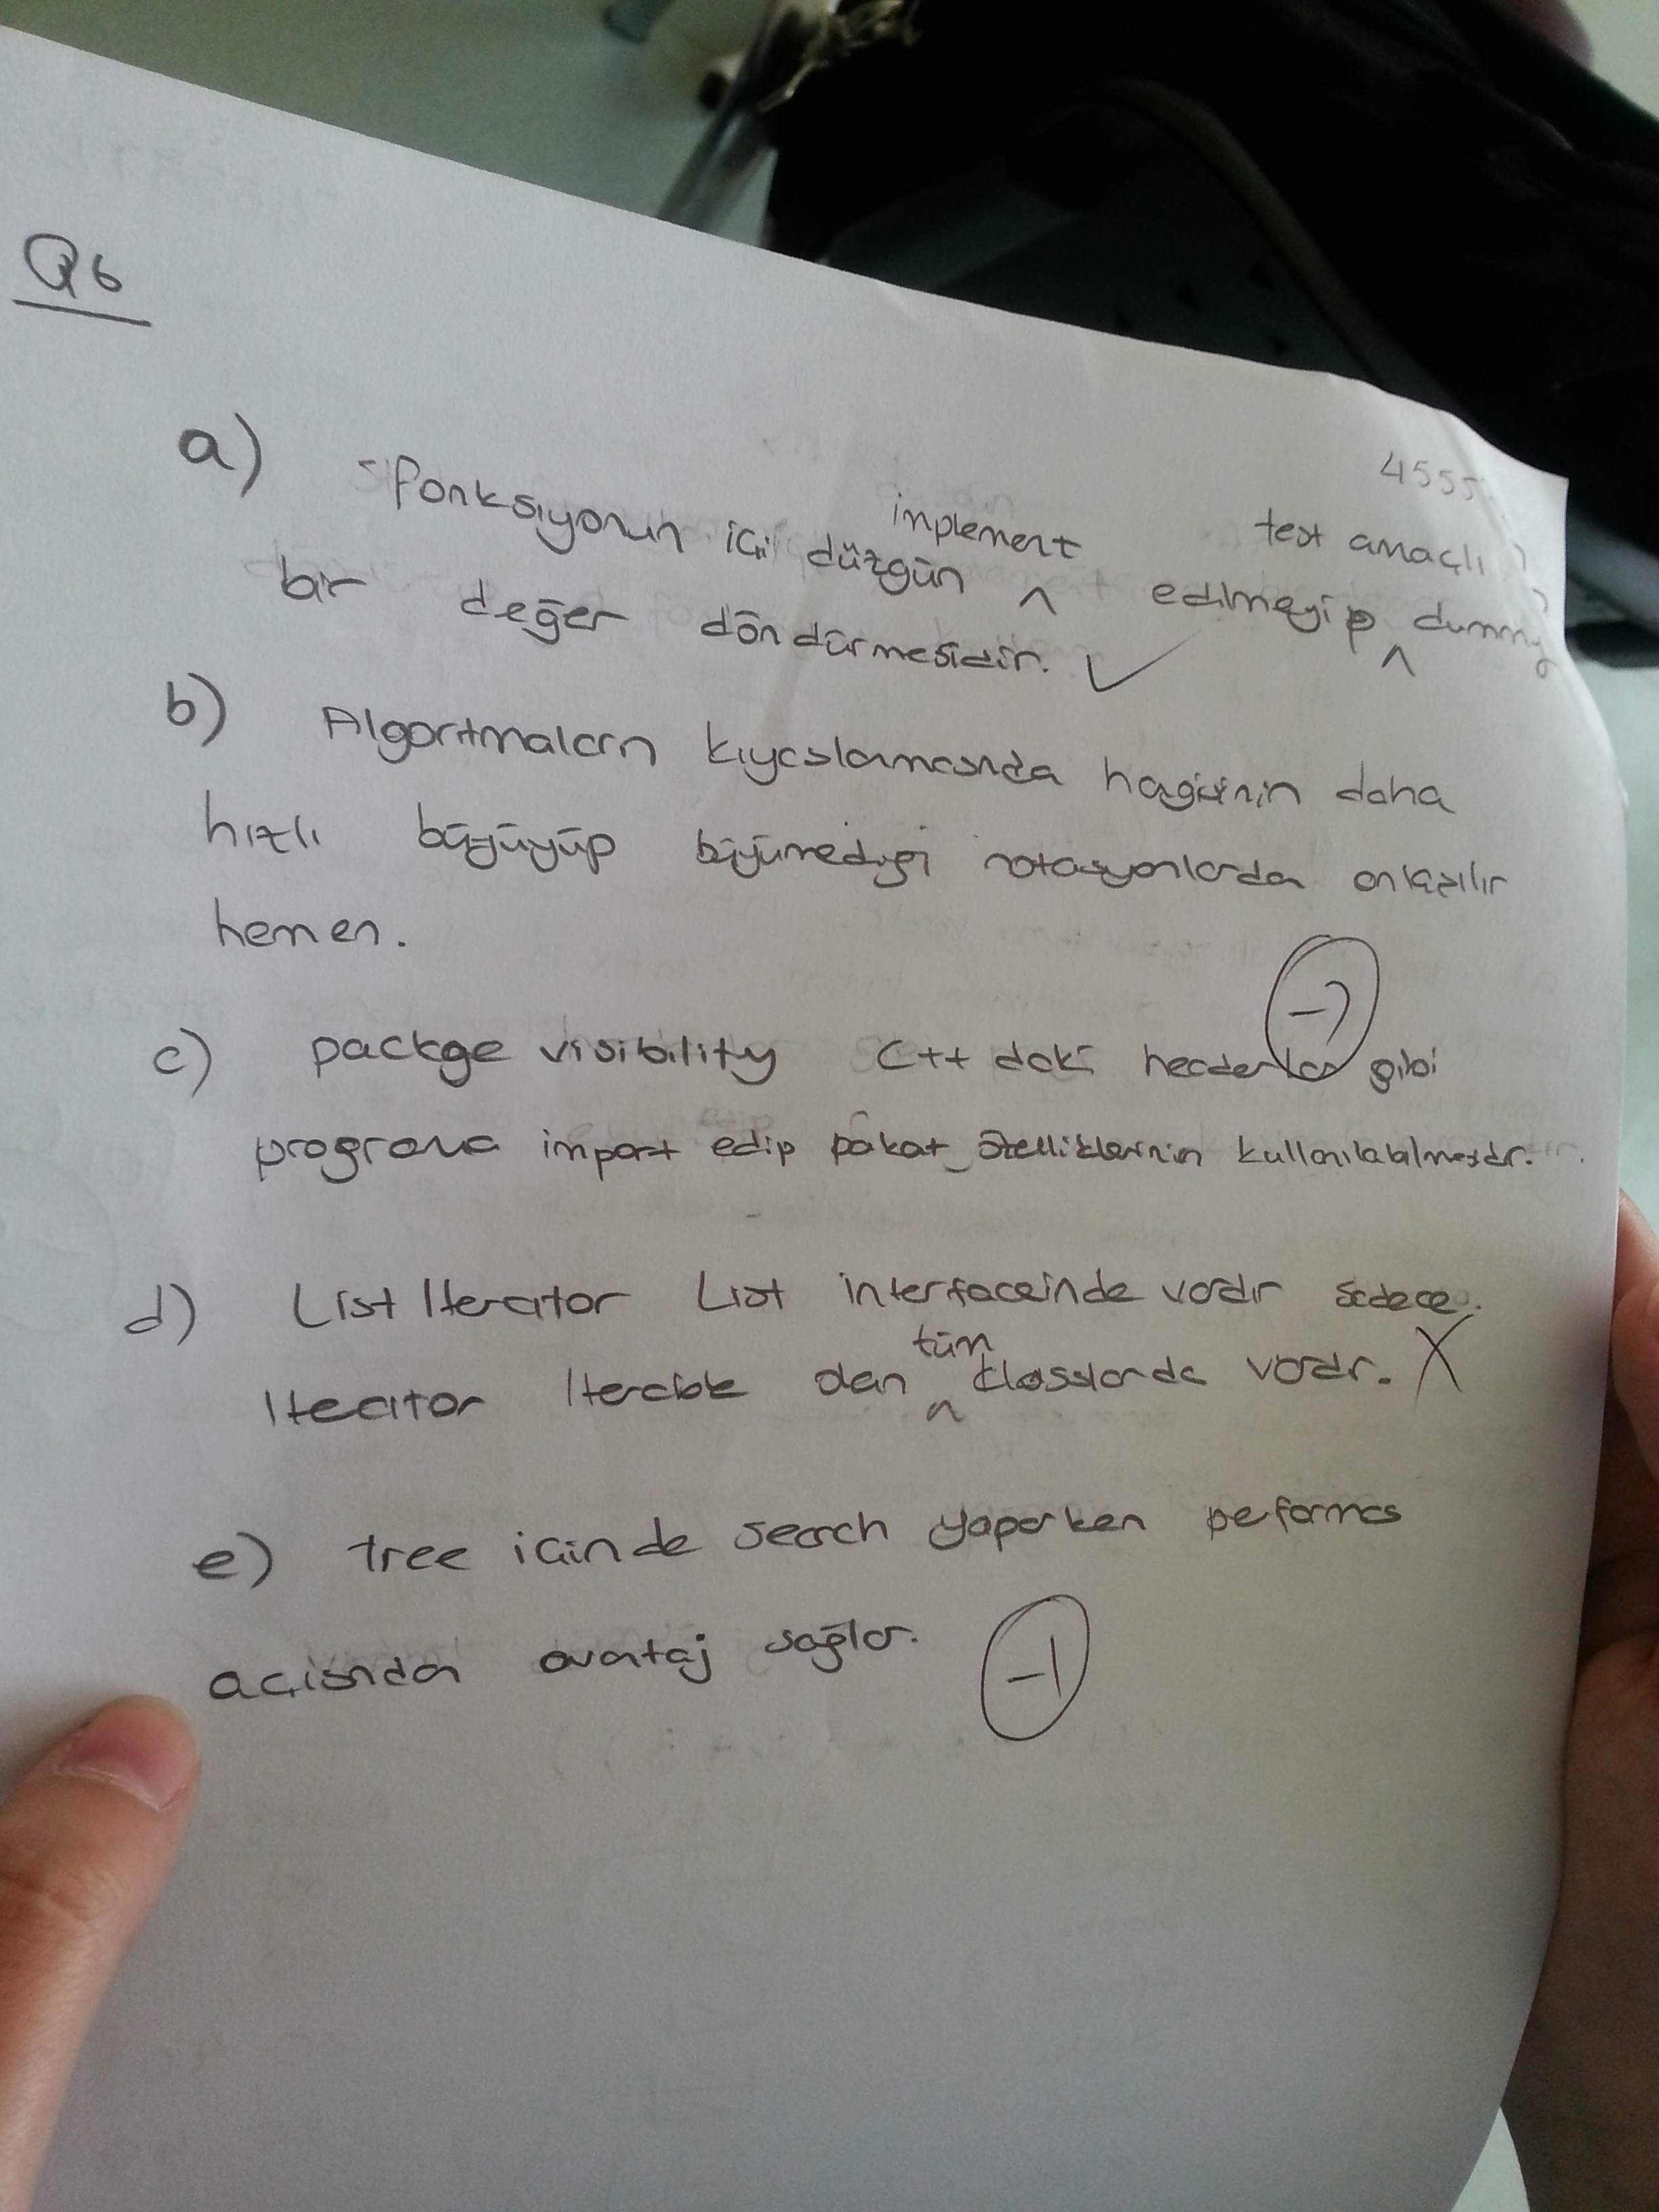 Q6
4555
a) fonksiyonun içi düzgün implement edilmeyip test amaçlı dummy
bir değer döndürmesidir. ✓
b) Algoritmaların kıyaslanmasında hagisinin daha
hızlı büyüyüp büyümediği notasyonlardan anlaşılır
hemen.
c) packge visibility C++ daki headerlar gibi
programa import edip paket özelliklerinin kullanılabilmesidir.
d) List Iterator List interfaceinde vardır sadece.
Iterator Iterable olan tüm classlarda vardır. X
e) tree içinde search yaparken performas
açısından avantaj sağlar. -1